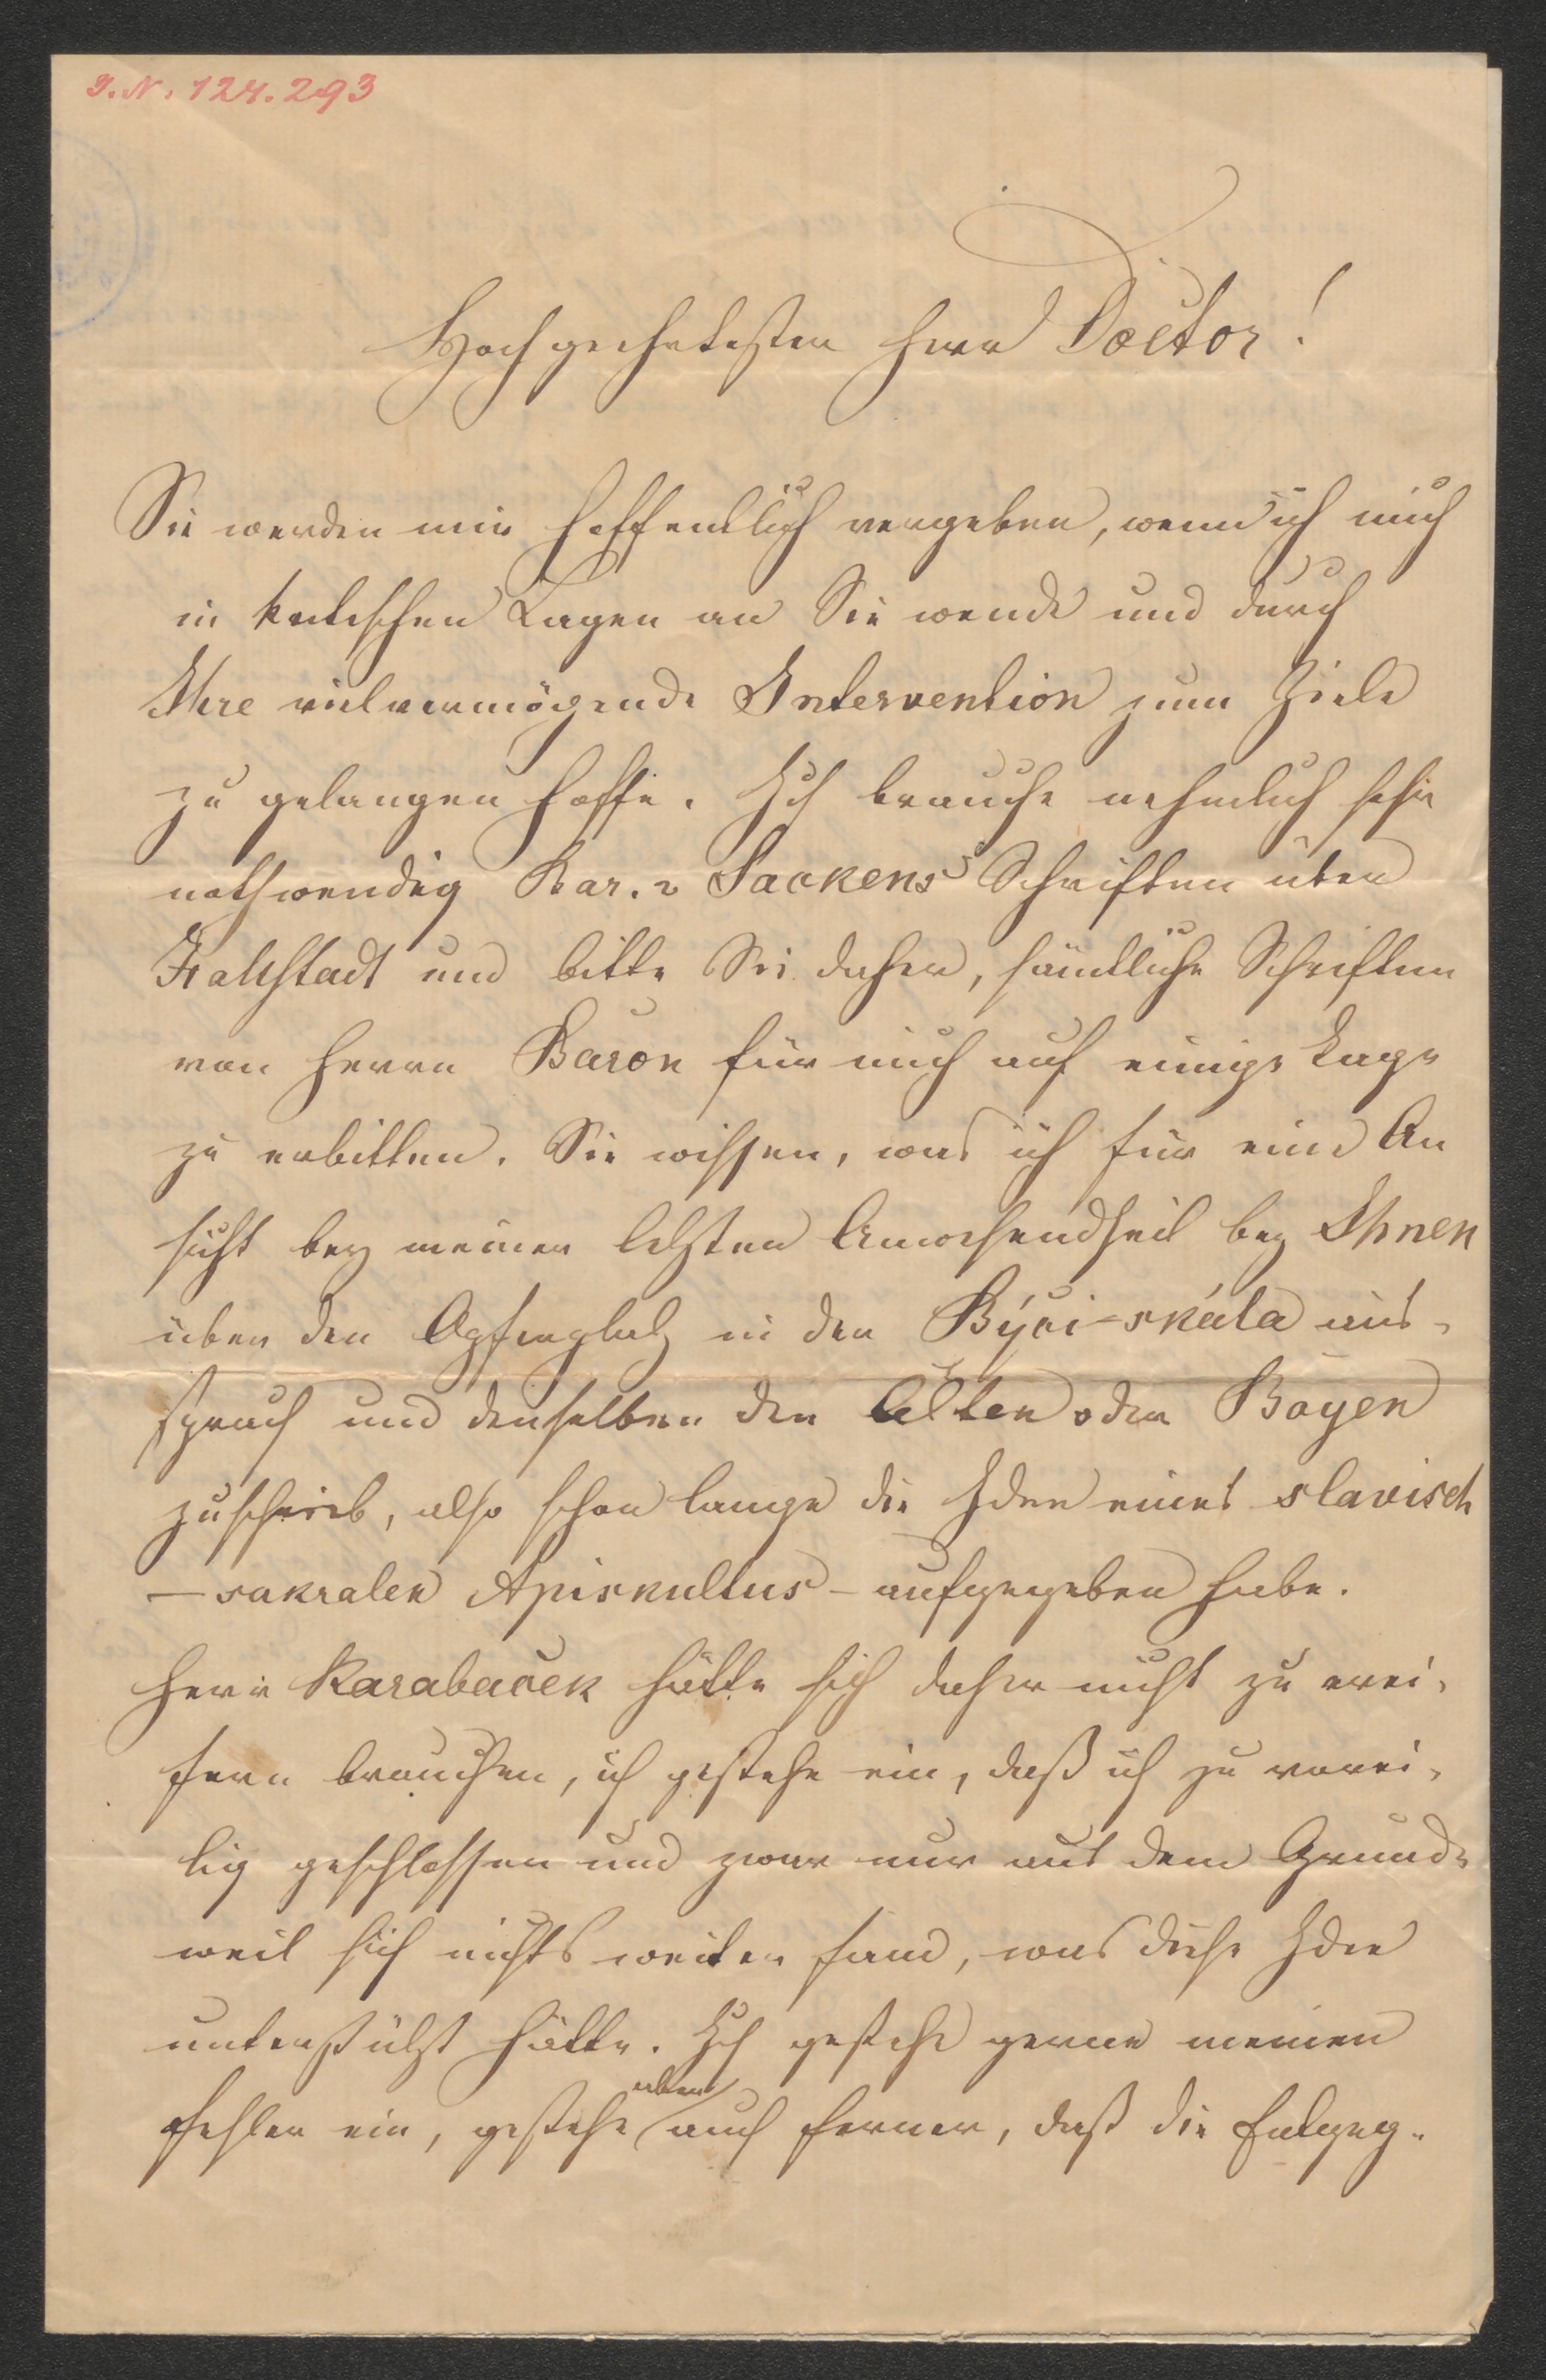 J.N. 124.293
Hochgeehrtester Herr Doctor!
Sie werden mir hoffentlich vergeben, wenn ich mich
in kritischen Lagen an Sie wende und durch
Ihre vielvermögende Intervention zum Ziele
zu gelangen hoffe. Ich brauche nehmlich sehr
nothwendig Bar. v Sackens Schriften über
Hallstadt und bitte Sie daher, sämtliche Schriften
von Herrn Baron für mich auf einige Tage
zu erbitten. Sie wissen, was ich für eine An
sicht bey meiner letzten Anwesendheit bey Ihnen
über den Opferplatz in der Býči-skála aus-
sprach und denselben den Celten oder Boyen
zuschrieb, also schon lange die Idee eines slavisch
– sakralen Apiskultus – aufgegeben habe.
Herr Karabaček hätte sich daher nicht zu erei-
fern brauchen, ich gestehe ein, daß ich zu vorei-
lig geschlossen und zwar nur aus dem Grunde
weil sich nichts weiter fand, was diese Idee
unterstützt hätte. Ich gestehe gerne meinen
Fehler ein, gestehe aber auch ferner, daß die Entgeg-